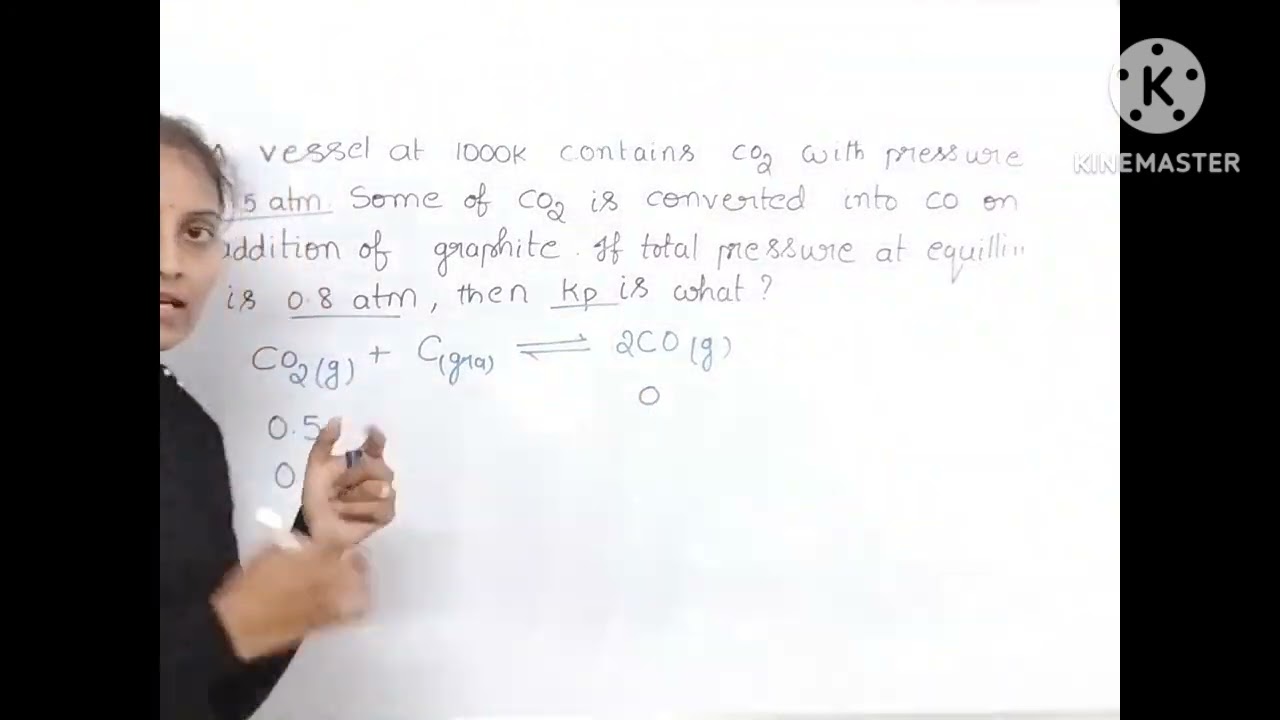 vessel at 1000K contains CO2 with pressure
5 atm. Some of CO2 is converted into CO on
addition of graphite. If total pressure at equilli
is 0.8 atm, then Kp is what?
CO2(g) + C(gra) ⇌ 2CO(g)
0
0.5
0
K
KINEMASTER